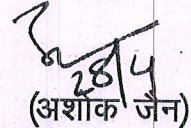 28/4
(अशोक जैन)